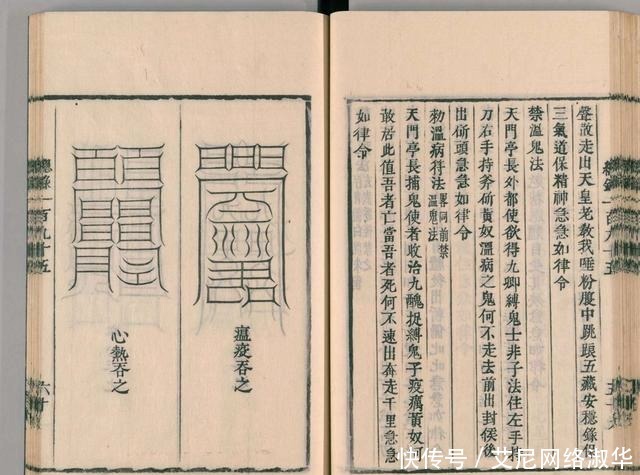 聲散走出天皇老教我唾粉塵中跳踉五藏安穩錄保
三氣道保精神急急如律令
禁溫鬼法
天門亭長外都使欲得九卿縛鬼士非子法住左手持
刀右手持斧斫黃奴溫病之鬼何不走去前出封侯後
出斫頭急急如律令
勑溫病符法 畧同前禁溫鬼法
天門亭長捕鬼使者收治九醜捉縛鬼子疫癘黃奴
敢居此值吾者亡當吾者死何不速出奔走千里急急
如律令
總錄一百九十五
瘟疫吞之
心熱吞之
總錄一百九十五
六十
快传号／艾尼网络淑华